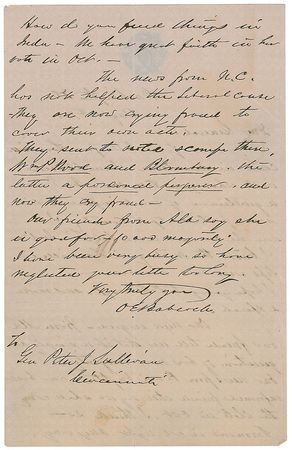 How do you find things in
Inda - We have great faith in her
vote in Oct. -
The news from N.C.
has not helped the Liberal cause
They are now crying fraud to
cover their own acts.
They sent to noted scamps there,
Wood and Blomberg. the
latter a pardoned perjurer. and
now they cry fraud -
Our friends from Ala say she
is good for 10 000 majority
I have been very busy. so have
neglected your letter so long.
Very truly yours
O E Babcock
To
Gen Peter J. Sullivan
Cincinnati